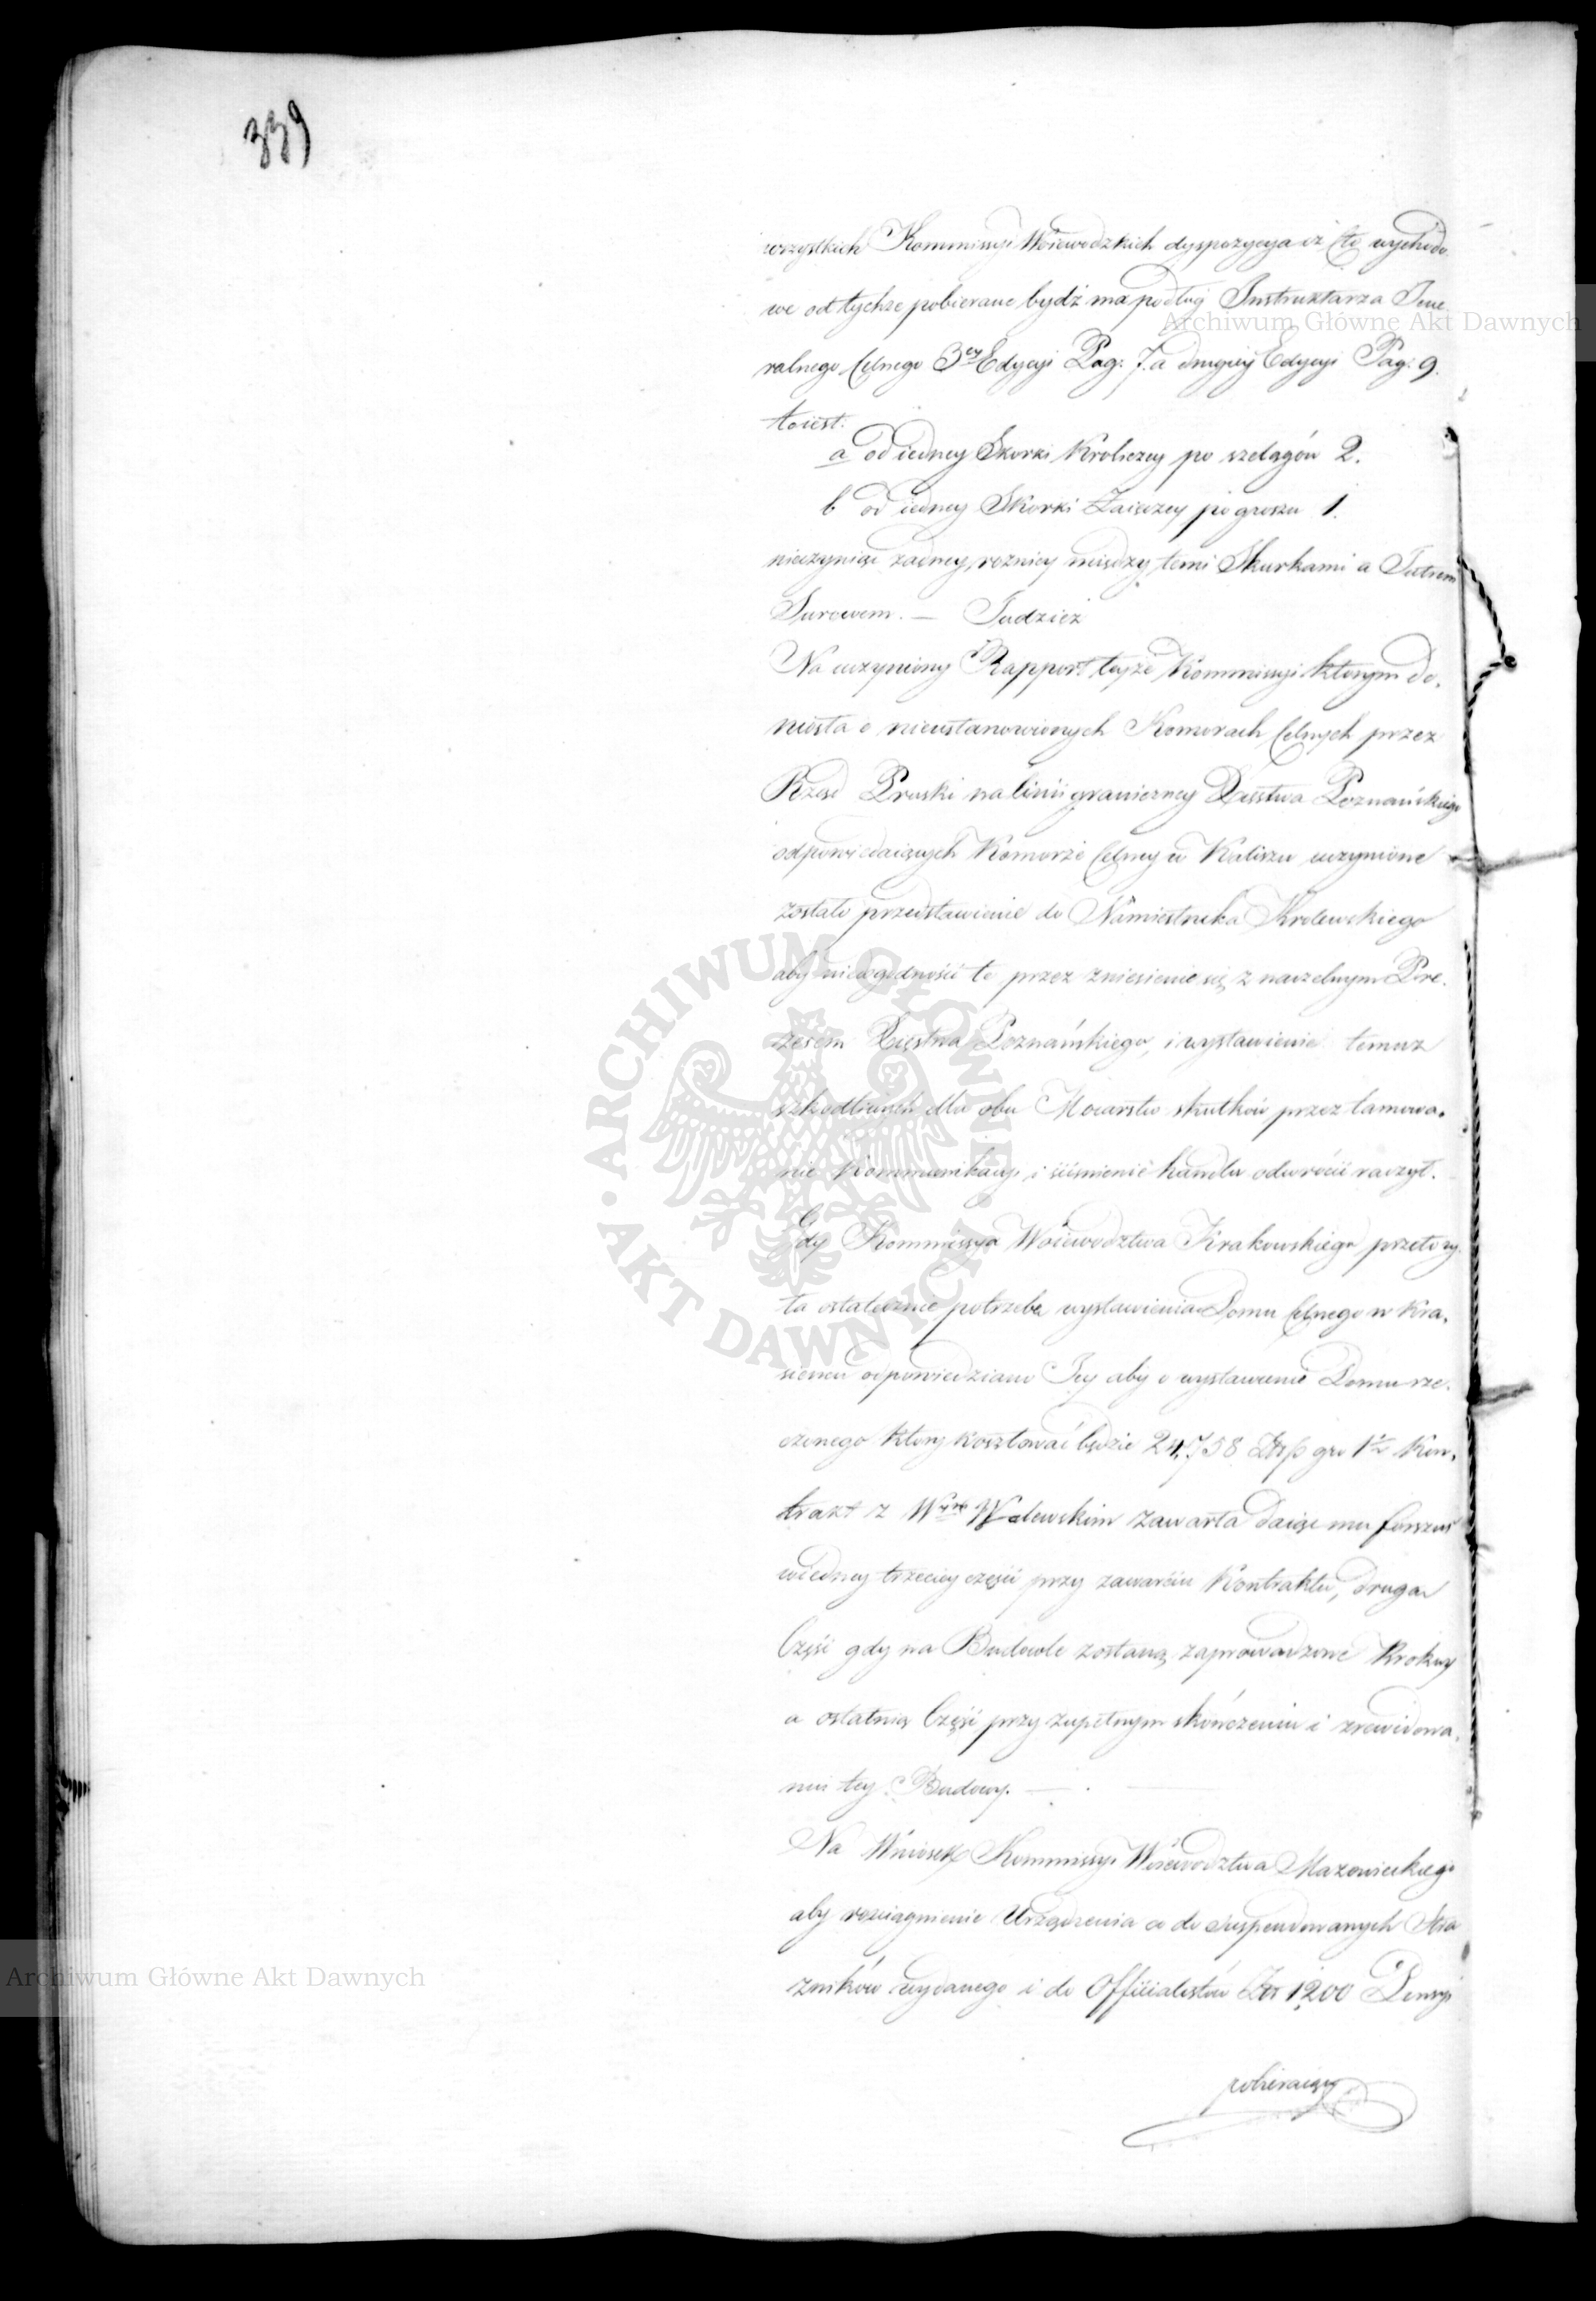 339
wszystkich Kommissyi Woiewodzkich dyspozycya iż Cło wychodo-
we od tychże pobierane bydź ma podług Instruktarza Jene-
ralnego Celnego 3ey Edycyi Pag: 7. a drugiey Edycyi Pag: 9.
to iest:
a od iedney Skorki Kroliczey po szelągów 2.
b od iedney Skorki Zaięczey po groszu 1.
nieczyniąc żadney rożnicy między temi Skurkami a Futrem
Surowem. — Tudzież
Na uczyniony Rapport teyże Kommissyi którym do-
niosła o nieustanowionych Komorach Celnych przez
Rząd Pruski na linii graniczney Xięstwa Poznańskiego
odpowiedaiących Komorze Celney w Kaliszu uczynione
zostało przedstawienie do Namiestnika Krolewskiego
aby niedogodności te przez zniesienie się z naczelnym Pre-
zesem Xięstwa Poznańskiego, i wystawienie temuż
szkodliwych dla obu Mocarstw skutków przez tamowa-
nie Kommunikacyi i ściśnienie handlu odwrócić raczył.
Gdy Kommissya Woiewodztwa Krakowskiego przełoży-
ła ostatecznie potrzebę wystawienia Domu Celnego w Kra-
odpowiedziano Jey aby o wystawienie Domu rze-
czonego który kosztować będzie 24,758 Złp gro 1 Kon-
trakt z Wym Walewskim zawarła daiąc mu forszus
w iedney trzeciey części przy zawarciu Kontraktu, drugą
Część gdy na Budowle zostaną zaprowadzone Krokwy
a ostatnią Część przy zupełnym skończeniu i zrewidowa-
niu tey Budowy. —
Na Wniosek Kommissyi Woiewodztwa Mazowieckiego
aby rozciągnienie Urządzenia co do suspendowanych Stra-
żników wydanego i do Officialistów Złt 1,200 Pensyi
pobieraiący
Archiwum Główne Akt Dawnych
ARCHIWUM GŁÓWNE • AKT DAWNYCH •
Archiwum Główne Akt Dawnych